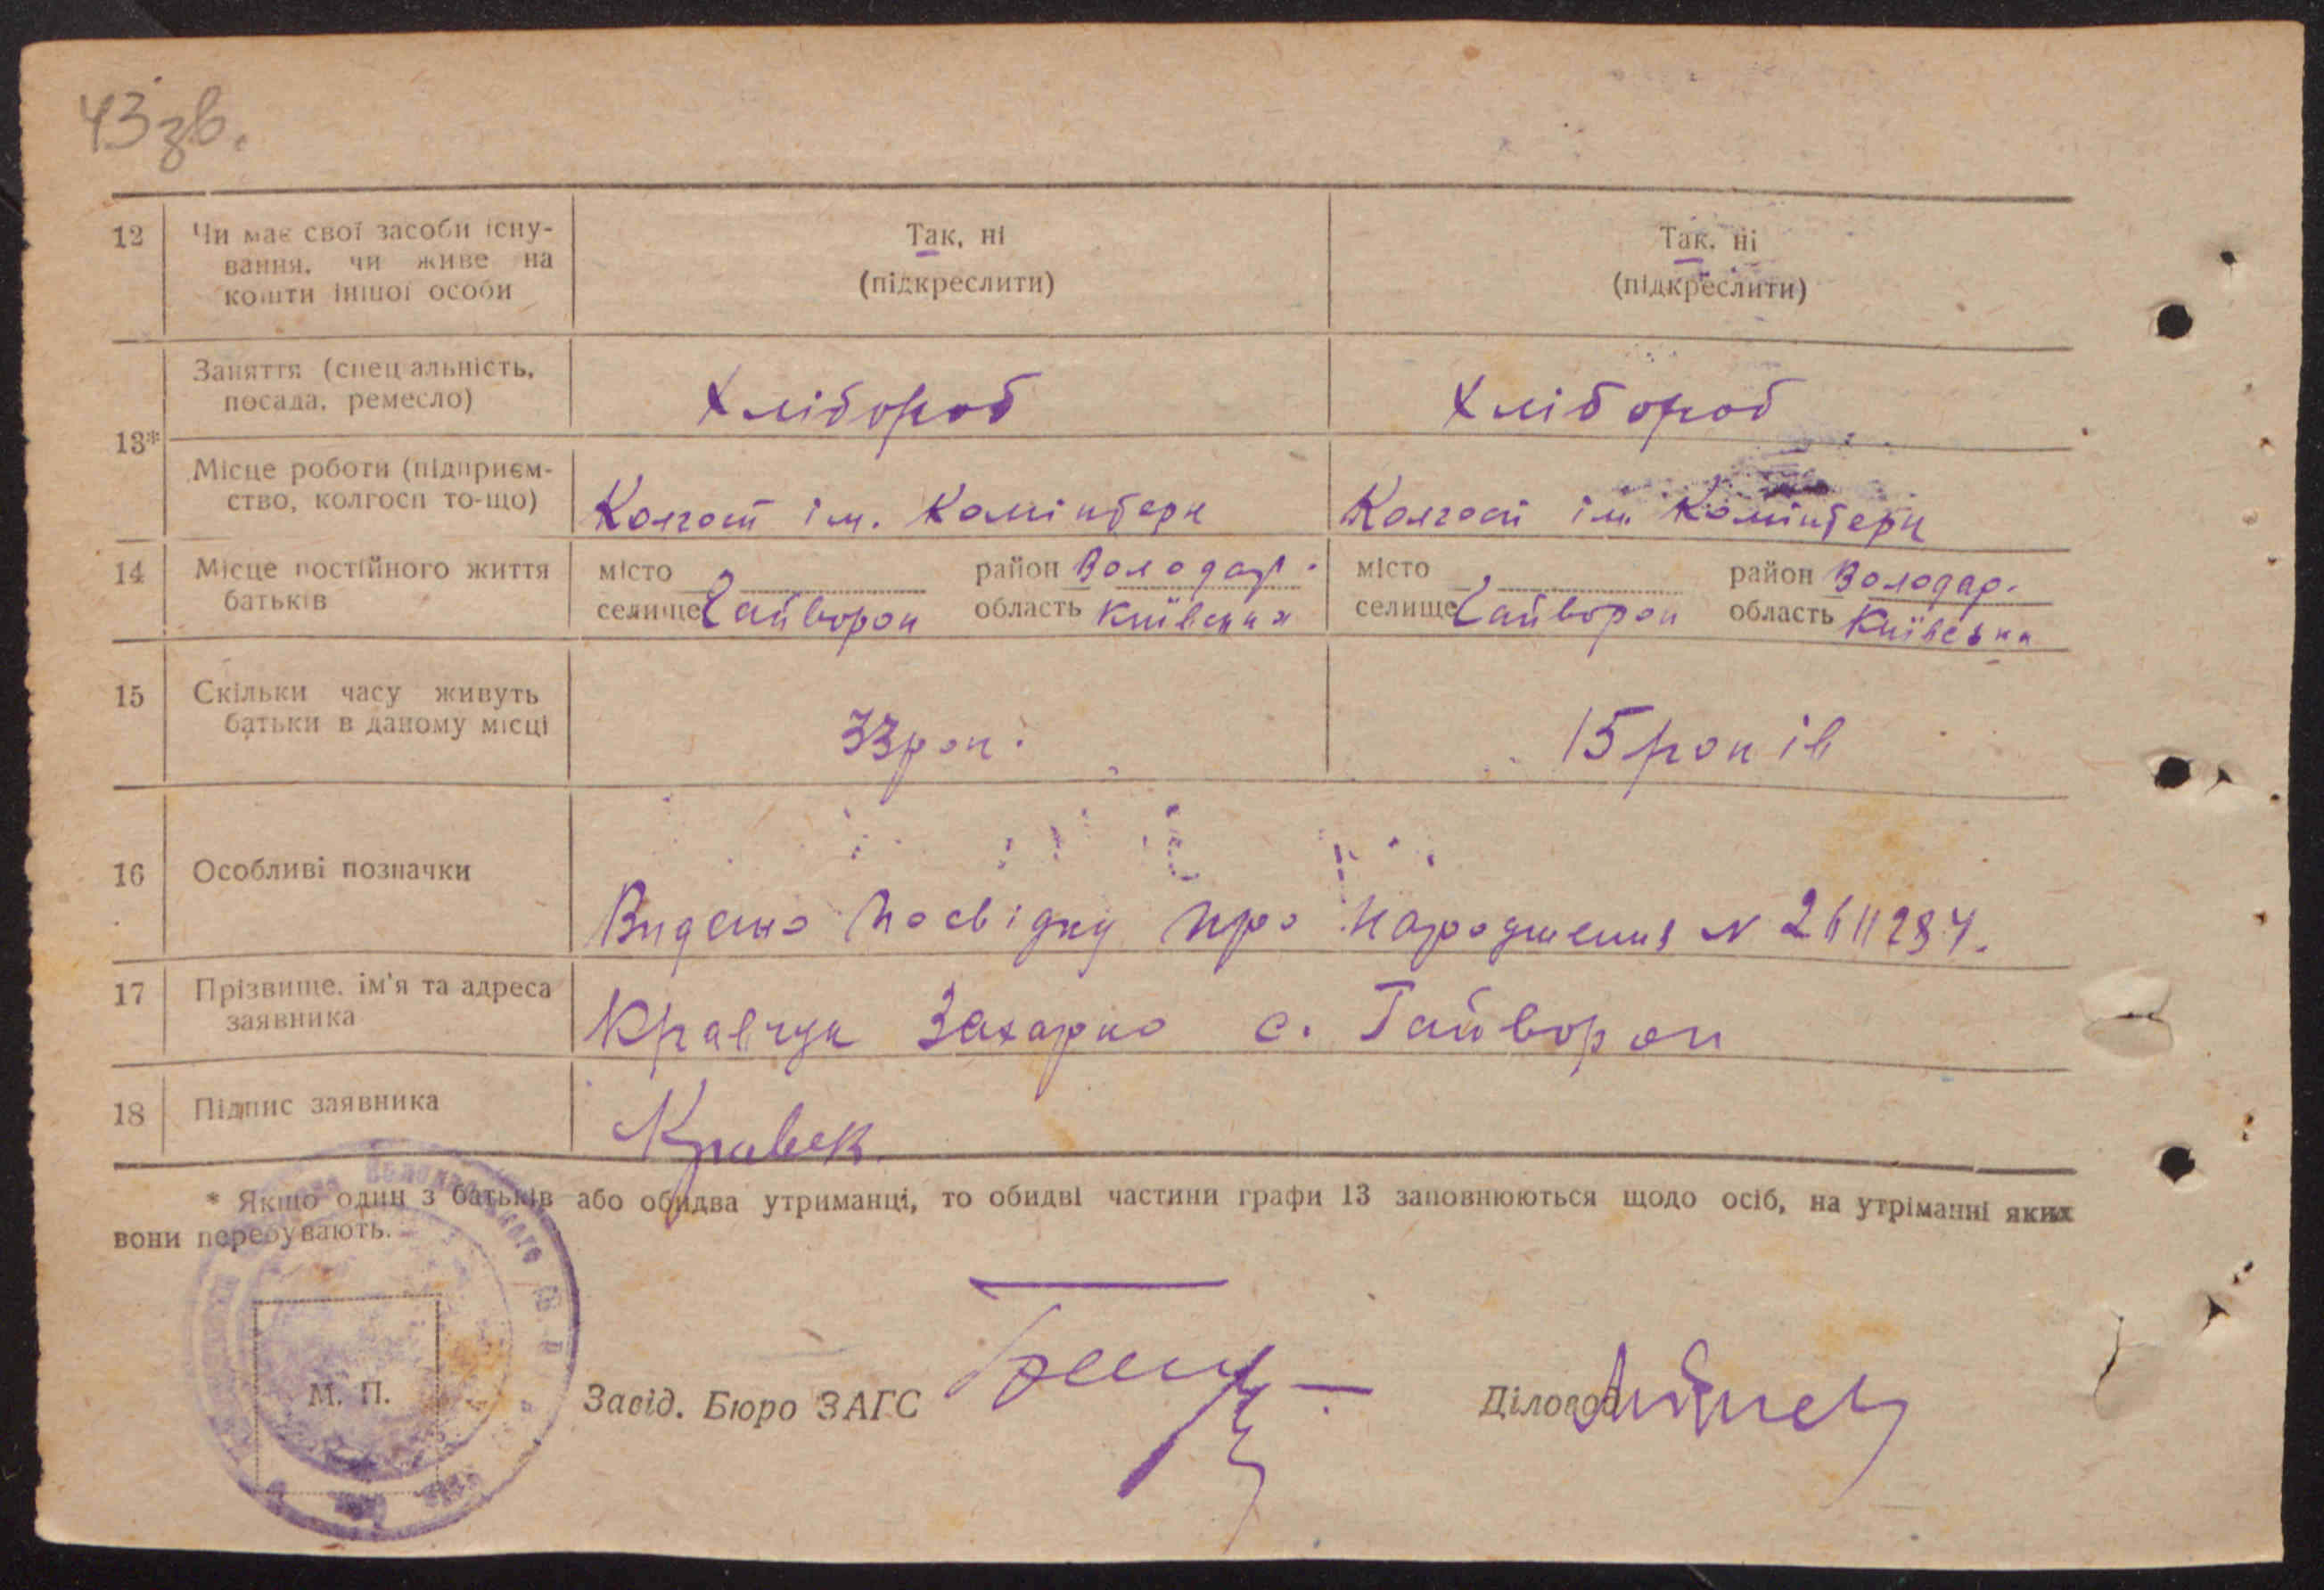 43зв.
12 Чи має свої засоби існу- Так, ні Так, ні
вання, чи живе на (підкреслити) (підкреслити)
кошти іншої особи
Заняття (спеціальність, Хлібороб Хлібороб
посада, ремесло)
13*
Місце роботи (підприєм-
ство, колгосп то-що) Колгосп ім. Комінтерн Колгосп ім. Комінтерн
14 Місце постійного життя місто район Володар. місто район Володар.
батьків селище Гайворон область Київська селище Гайворон область Київська
15 Скільки часу живуть
батьки в даному місці 33 рок. 15 років
16 Особливі позначки
Видано посвідку про народження N
17 Прізвище, ім'я та адреса
заявника Кравчук Захарко с. Гайворон
18 Підпис заявника
* Якщо один з батьків або обидва утриманці, то обидві частини графи 13 заповнюються щодо осіб, на утріманні яких
вони перебувають.
М. П.
Завід. Бюро ЗАГС Діловод